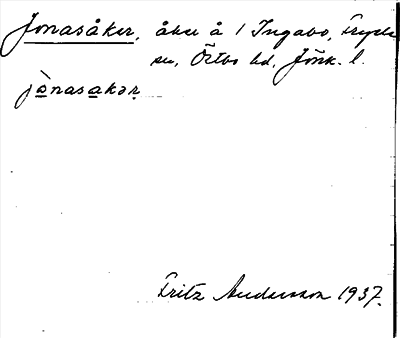 Jonasåker, åker å 1 Ingabo, Fryele
sn, Östbo hd, Jönk. l.
jònasakər
Fritz Andersson 1937.